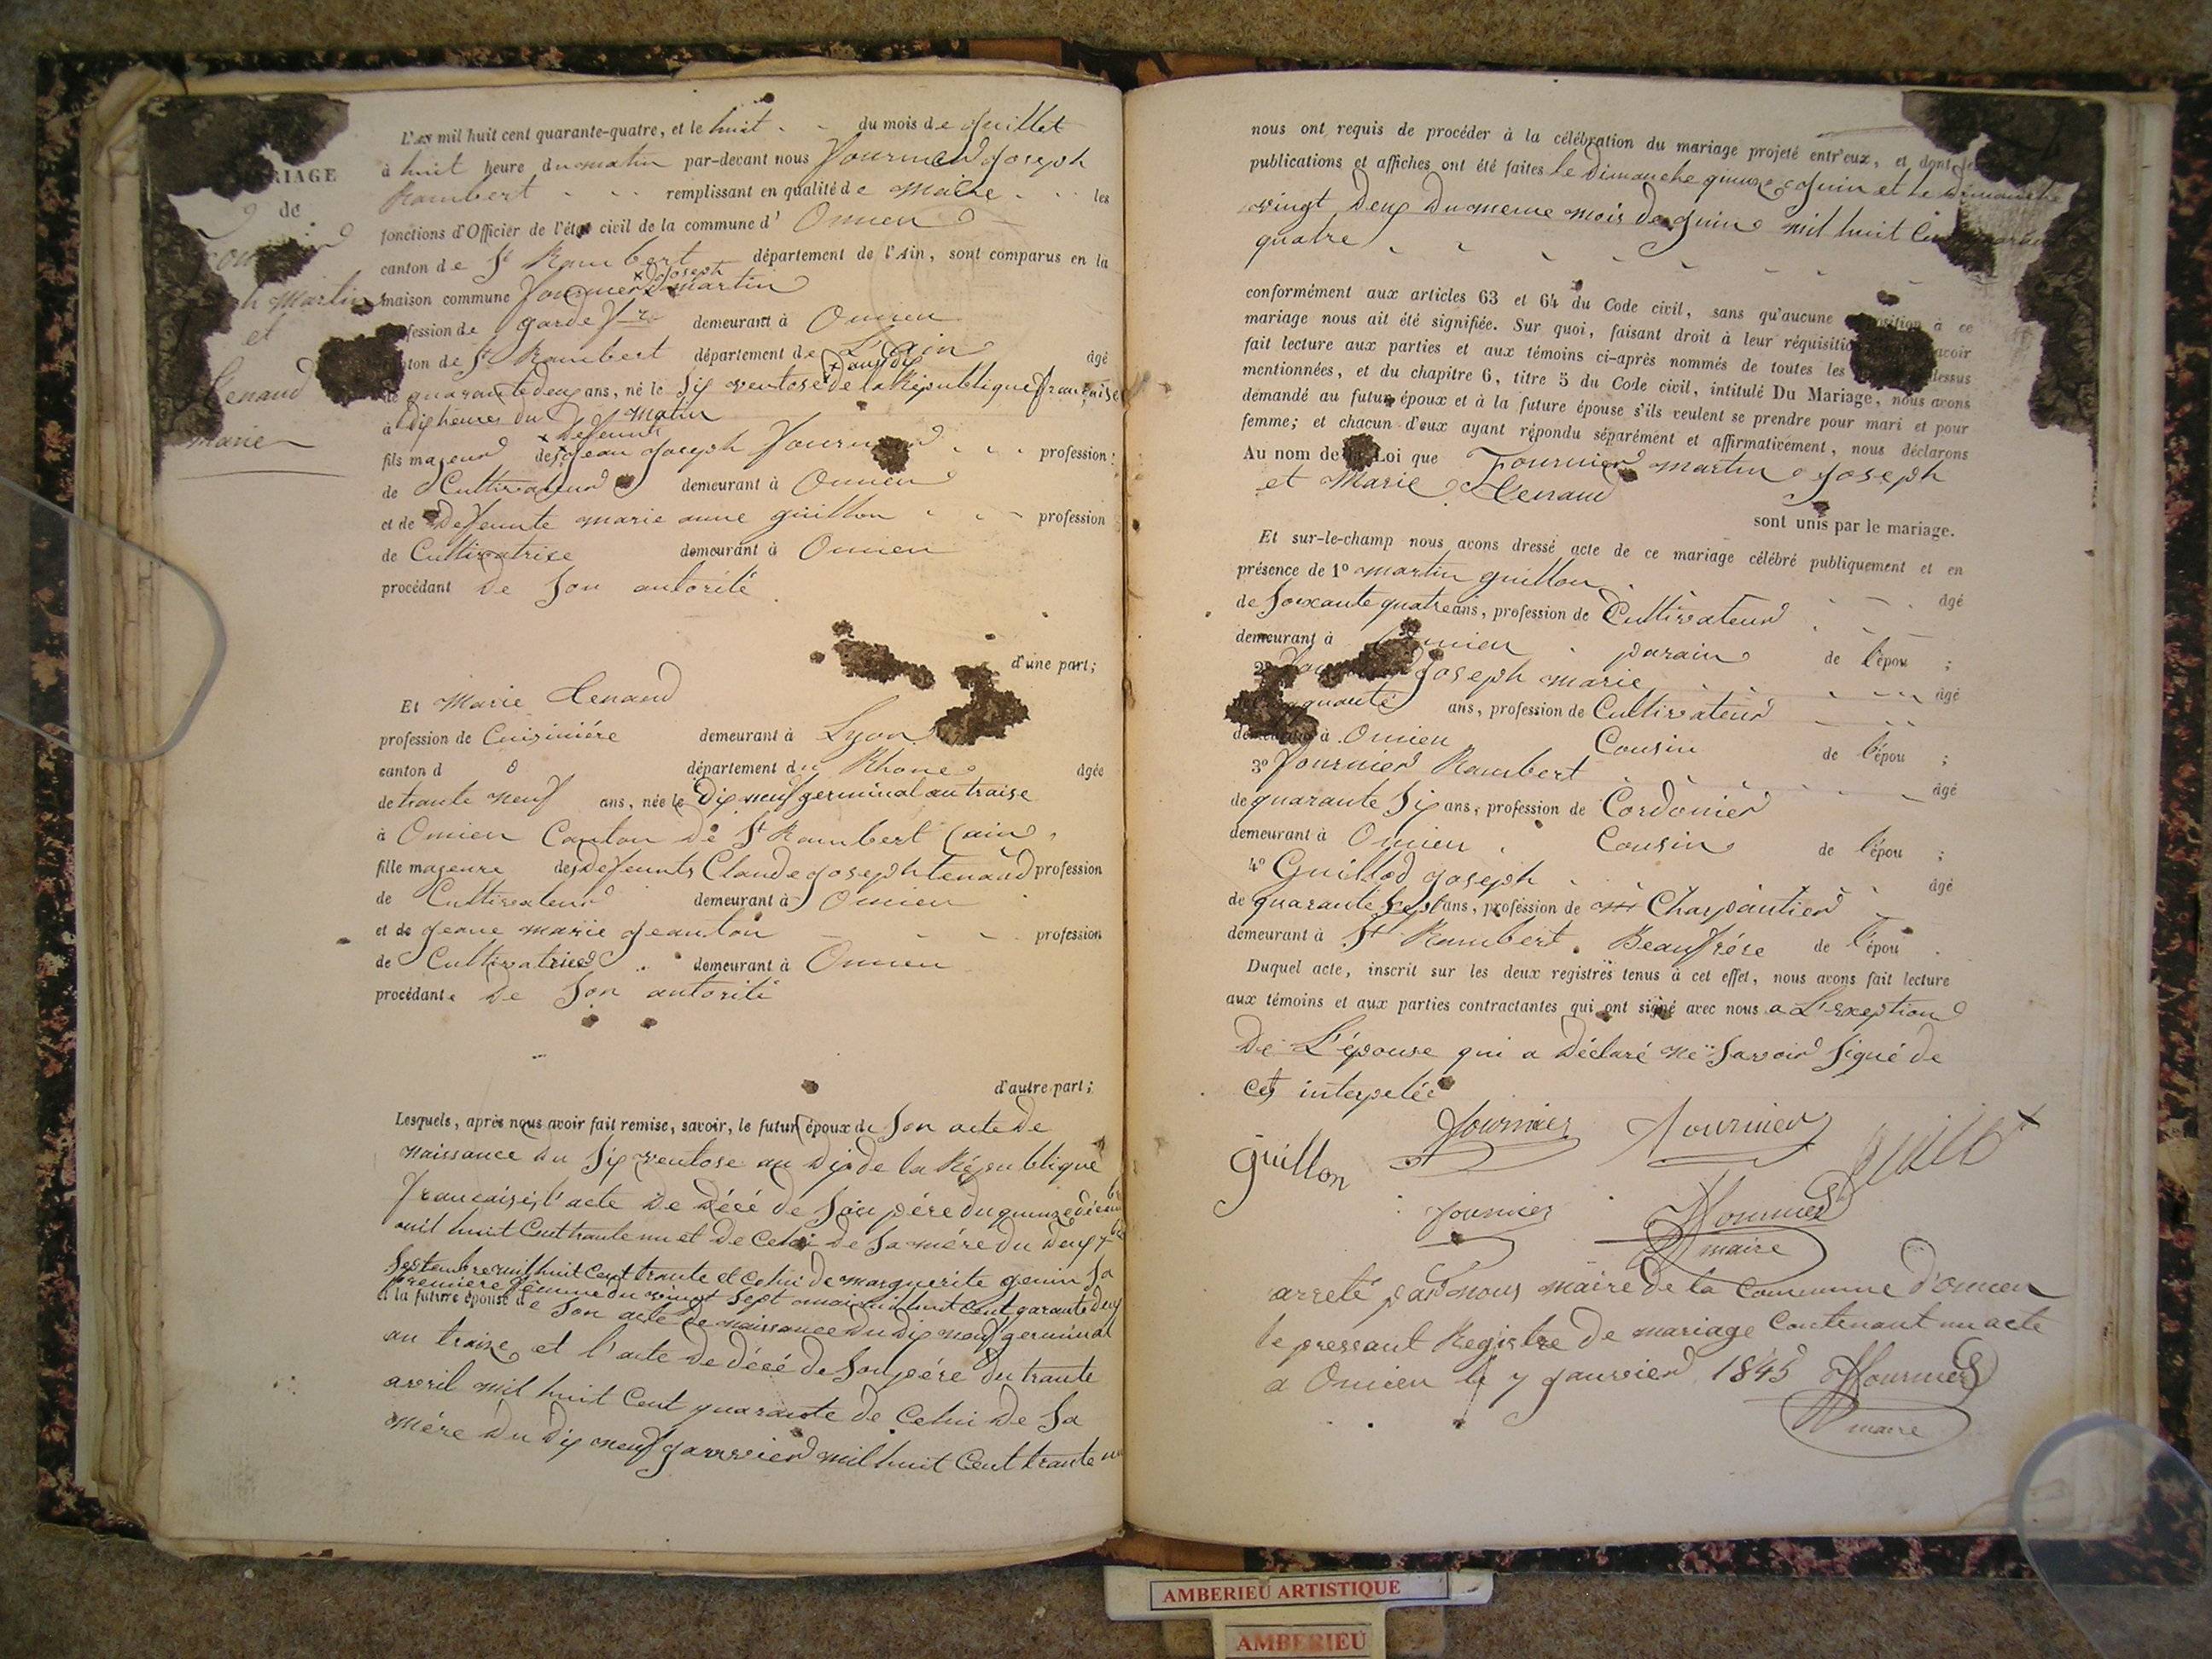 RIAGE
de
h Martin
et
Tenaud
Marie
L'an mil huit cent quarante-quatre, et le huit du mois de juillet
à huit heure du matin par-devant nous Fournier joseph
Rambert remplissant en qualité de Maire les
fonctions d'Officier de l'état civil de la commune d' Oncieu
canton de St Rambert département de l'Ain, sont comparus en la
x joseph
maison commune Fournier x martin
fession de garde demeurant à Oncieu
nton de St Rambert département de L'ain âgé
x an dix
de quarante deux ans, né le six ventose x de la République française
à dix heures du matin
x defeunts
fils majeur des x jean joseph Fournier profession
de Cultivateur demeurant à Oncieu
et de Defeunte marie anne guillon profession
de Cultivatrice demeurant à Oncieu
procédant de son autorité
d'une part;
Et Marie Tenaud
profession de Cuisiniére demeurant à Lyon
canton d département du Rhone âgée
de trante neuf ans, née le Dix neuf germinal an traise
à Oncieu Canton de St Rambert (ain)
fille majeure des defeunts Claude joseph tenaud profession
de Cultivateur demeurant à Oncieu
et de jeane marie jeanton profession
de Cultivatrice demeurant à Oncieu
procédante de son autorité
d'autre part;
Lesquels, après nous avoir fait remise, savoir, le futur époux de son acte de
naissance du six ventose an dix de la République
française, l'acte de décé de son pére du quinze décem
mil huit Cent trante un et de Celui de sa mére du deux
Septembre mil huit Cent trante et Celui de marguerite genin sa
premiere femme du vingt sept mai mil huit Cent garante deux
et la future épouse de son acte de naissance du dix neuf germinal
an traize et l'acte de décé de son pére du trante
avril mil huit Cent quarante de Celui de sa
mére du dix neuf janvier mil huit Cent trante un
nous ont requis de procéder à la célébration du mariage projeté entr'eux, et dont
publications et affiches ont été faites le dimanche quinze juin et le dimanche
vingt deux du meme mois de juin mil huit
quatre
conformément aux articles 63 et 64 du Code civil, sans qu'aucune opposition à ce
mariage nous ait été signifiée. Sur quoi, faisant droit à leur réquisition avoir
fait lecture aux parties et aux témoins ci-après nommés de toutes les dessus
mentionnées, et du chapitre 6, titre 5 du Code civil, intitulé Du Mariage, nous avons
demandé au futur époux et à la future épouse s'ils veulent se prendre pour mari et pour
femme; et chacun d'eux ayant répondu séparément et affirmativement, nous déclarons
Au nom de la Loi que Fournier martin joseph
et Marie Tenaud
sont unis par le mariage.
Et sur-le-champ nous avons dressé acte de ce mariage célébré publiquement et en
présence de 1° martin guillon âgé
de soixante quatre ans, profession de Cultivateur
demeurant à Oncieu parain de l'épou ;
2° joseph marie âgé
quante ans, profession de Cultivateur
demeurant à Oncieu Cousin de l'épou ;
3° Fournier Rambert âgé
de quarante six ans, profession de Cordonier
demeurant à Oncieu Cousin de l'épou ;
4° Guillod joseph âgé
de quarante sept ans, profession de Charpantier
demeurant à St Rambert Beaufrére de l'épou
Duquel acte, inscrit sur les deux registres tenus à cet effet, nous avons fait lecture
aux témoins et aux parties contractantes qui ont signé avec nous a L'exeption
De L'épouse qui a déclaré ne savoir signé de
ces interpelée
Fournier Fournier
Guillon
fournier Fournier
maire
arreté par nous maire de la Commune d'oncieu
le pressant Registre de mariage Contenant un acte
a Oncieu le 7 janvier 1845 Fournier
maire
AMBERIEU ARTISTIQUE
AMBERIEU